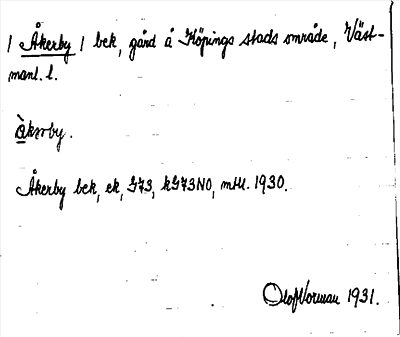 / Åkerby / bek, gård å Köpings stads område, Väst-
manl. l.
Åkerby bek, ek, G73, kG73NO, mtll. 1930.
Olof Norman 1931.